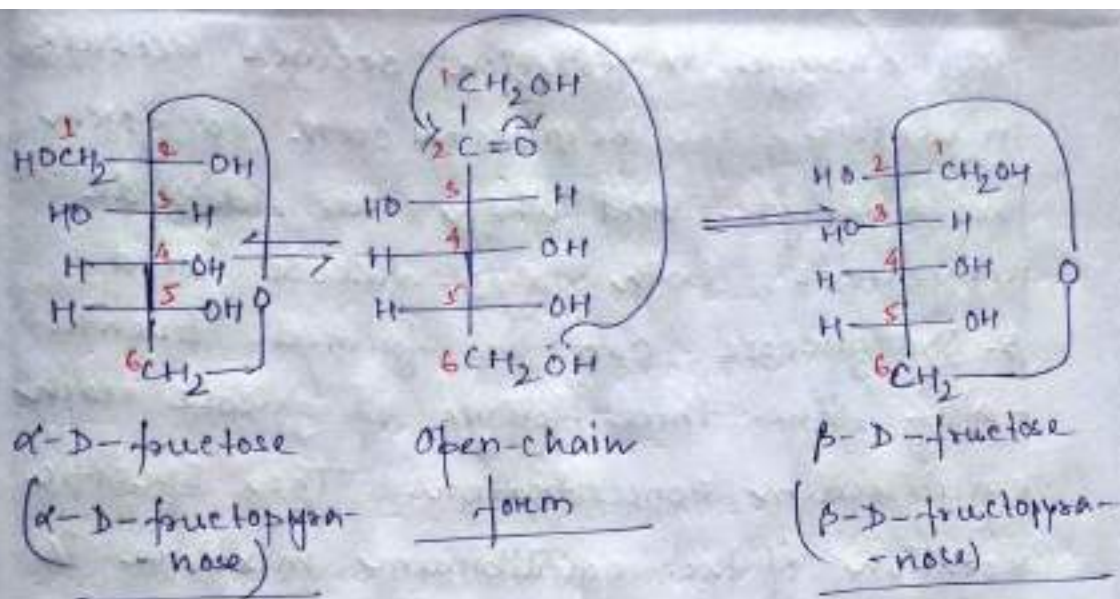 1
HOCH₂ 2 OH
HO 3 H
H 4 OH
H 5 OH
O
6CH₂
α-D-fructose
(α-D-fructopyra-
-nose)
1CH₂OH
2 C=O
HO 3 H
H 4 OH
H 5 OH
6CH₂ÖH
Open-chain
form
HO 2 1CH₂OH
HO 3 H
H 4 OH
H 5 OH
O
6CH₂
β-D-fructose
(β-D-fructopyra-
-nose)